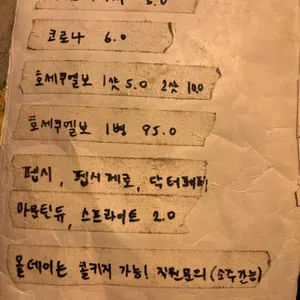 5.0
코로나 6.0
호세쿠엘보 1샷 5.0 2샷 10.0
호세쿠엘보 1병 95.0
펩시, 펩시제로, 닥터페퍼
마운틴듀, 스프라이트 2.0
올데이는 콜키지 가능! 직원문의 (소주간능)